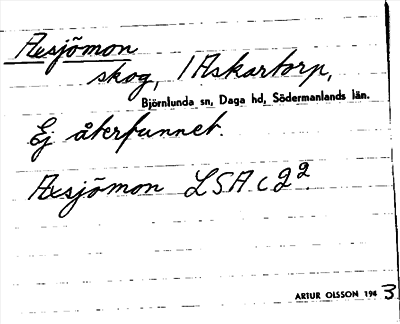 Axsjömon
skog, 1 Askartorp,
Björnlunda sn, Daga hd, Södermanlands län.
Ej återfunnet.
Axsjömon LSA c 22.
ARTUR OLSSON 1943